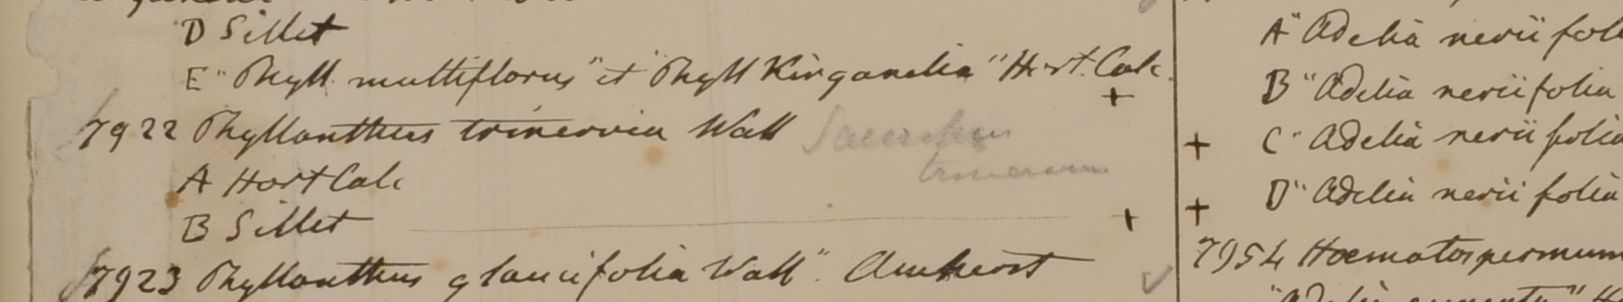 D Sillet
E "Phyll. multiflorus" et "Phyll Kirganelia" Hort. Calc.
7922 Phyllanthus trinervia Wall
trinervium
A Hort Calc
B Sillet
7923 Phyllanthus glaucifolia Wall". Amherst
A "Adelia nerii foli
B "Adelia neriifolia
+ C "Adelia nerii folia
+ D "Adelia nerii folia
7954 Haematospermum